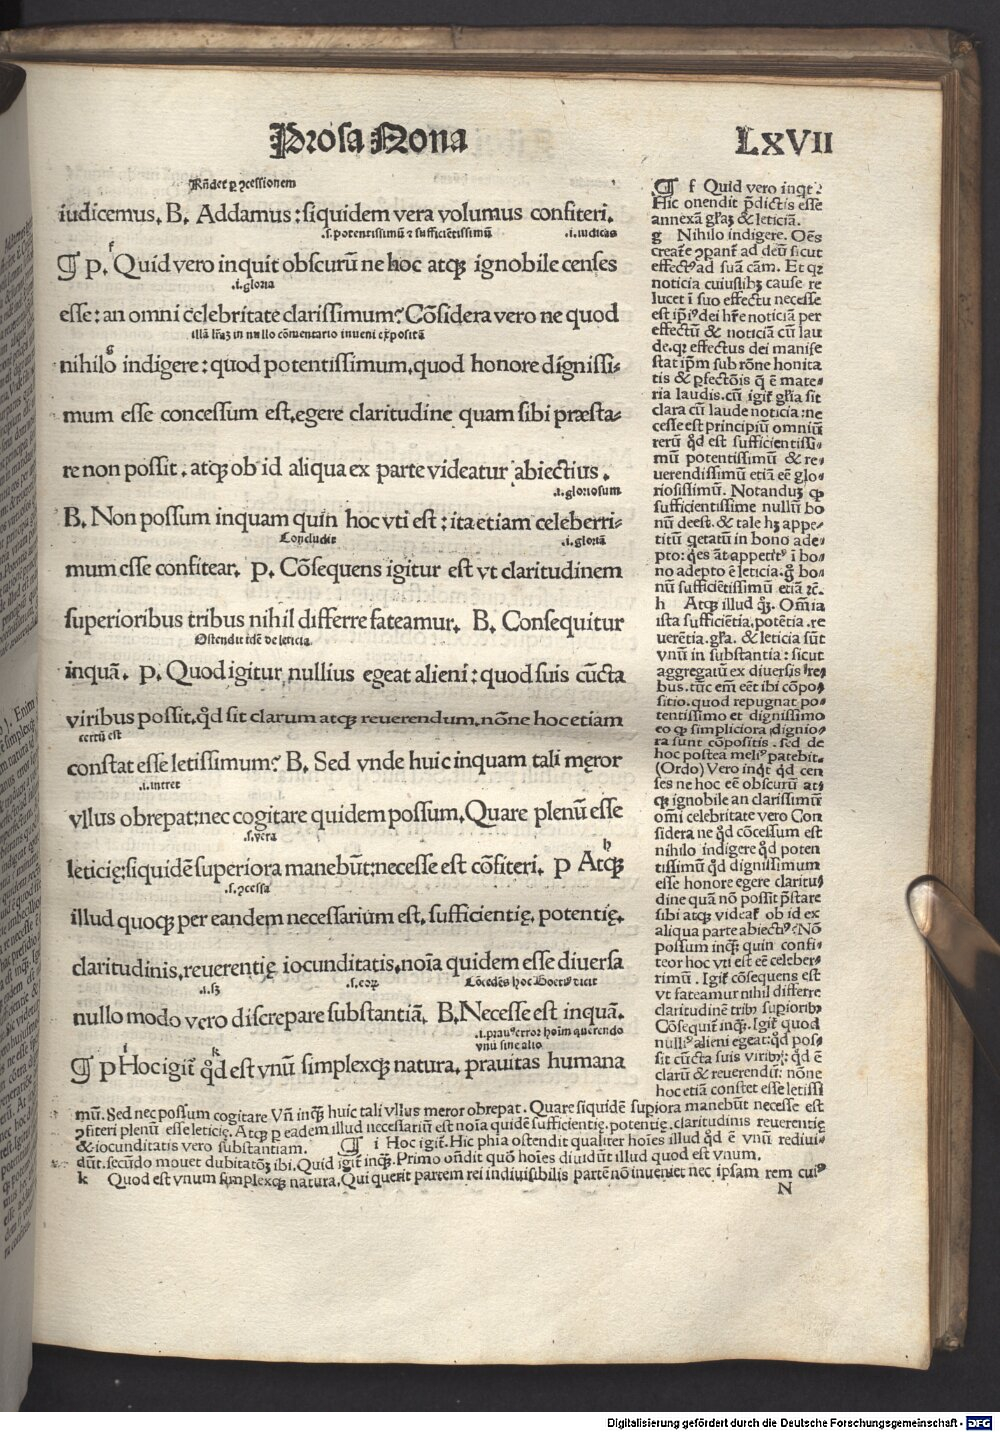 Prosa Nona
LxVII
Rñdet ꝑ ꝯcessionem
iudicemus. B. Addamus: siquidem vera volumus confiteri.
.s. potentissimū ⁊ sufficiētissimū .i. iudicas
f
¶ P. Quid vero inquit obscurū ne hoc atqꝫ ignobile censes
.i. gloria
esse: an omni celebritate clarissimum? Cōsidera vero ne quod
illā lrāꝫ in nullo cōmentario inueni expositā
g
nihilo indigere: quod potentissimum, quod honore dignissi⸗
mum esse concessum est, egere claritudine quam sibi præsta⸗
re non possit. atqꝫ ob id aliqua ex parte videatur abiectius.
.i. gloriosum
B. Non possum inquam quin hoc vti est: ita etiam celeberri⸗
Concludit .i. gloriā
mum esse confitear. P. Cōsequens igitur est vt claritudinem
superioribus tribus nihil differre fateamur. B. Consequitur
Ostendit idē de leticia.
inquā. P. Quod igitur nullius egeat alieni: quod suis cūcta
viribus possit. qd̄ sit clarum atqꝫ reuerendum, nōne hoc etiam
certū est
constat esse letissimum? B. Sed vnde huic inquam tali męror
.i. intret
vllus obrepat: nec cogitare quidem possum. Quare plenū esse
.s. vera
h
leticię: siquidē superiora manebūt: necesse est cōfiteri. P Atqꝫ
.s. ꝯcessa
illud quoqꝫ per eandem necessarium est, sufficientię, potentię,
claritudinis, reuerentię iocunditatis, noīa quidem esse diuersa
.i. sꝫ .s. eoꝝ Cōcedēs hoc Boetiꝰ dicit
nullo modo vero discrepare substantiā. B. Necesse est inquā.
.i. prauꝰ error hoīm querendo
vnū sine alio
i k
¶ P Hoc igit̄ qd̄ est vnū simplexqꝫ natura, prauitas humana
¶ f Quid vero inqt?
Hic onendit p̄dictis esse
annexā glāꝫ & leticiā.
g Nihilo indigere. Oēs
creat̄e ꝯparant̄ ad deū sicut
effectꝰ ad suā cām. Et qꝛ
noticia cuiuslibꝫ cause re
lucet ī suo effectu necesse
est ip̄iꝰ dei hr̄e noticiā per
effectū & noticiā cū lau
de. qꝛ effectus dei manife
stat ip̄m sub rōne honita
tis & ꝑfectōis q̄ ē mate⸗
ria laudis. cū igit̄ glīa sit
clara cū laude noticia: ne
cesse est principiū omniū
rerū qd̄ est sufficientissi⸗
mū potentissimū & re⸗
uerendissimū etiā eē glo⸗
riosissimū. Notanduꝫ ꝙ
sufficientissime nullū bo
nū deest. & tale hꝫ appe⸗
titū q̄etatū in bono ade⸗
pto: q̄es āt appetitꝰ ī bo⸗
no adepto ē leticia. g̊ bo⸗
nū sufficiētissimū etiā ꝛc̄.
h Atqꝫ illud qꝫ. Om̄ia
ista sufficiētia, potētia, re
uerētia, gl̄a. & leticia sūt
vnū in substantia: sicut
aggregatū ex diuersis re⸗
bus. tūc em̄ eēt ibi cōpo⸗
sitio. quod repugnat po⸗
tentissimo et dignissimo
eo ꝙ simpliciora dignio⸗
ra sunt cōpositis. sed de
hoc postea meliꝰ patebit.
(Ordo) Vero inqt̄ qd̄ cen
ses ne hoc eē obscurū at⸗
qꝫ ignobile an clarissimū
om̄i celebritate vero Con
sidera ne qd̄ cōcessum est
nihilo indigere qd̄ poten
tissimū qd̄ dignissimum
esse honore egere claritu⸗
dine quā nō possit p̄stare
sibi atqꝫ videat̄ ob id ex
aliqua parte abiectꝰ? Nō
possum inqꝫ quin confi⸗
teor hoc vti est eē celeber⸗
rimū. Igit̄ cōsequens est
vt fateamur nihil differre
claritudinē tribꝫ supioribꝫ
Cōsequit̄ inqꝫ. Igit̄ quod
nulliꝰ alieni egeat: qd̄ pos⸗
sit cūcta suis viribꝫ: qd̄ ē
clarū & reuerendū: nōne
hoc etiā constet esse letissi
mū. Sed nec possum cogitare Vn̄ inqꝫ huic tali vllus meror obrepat. Quare siquidē supiora manebūt necesse est
ꝯfiteri plenū esse leticię. Atqꝫ ꝑ eadem illud necessariū est noīa quidē sufficientię, potentię, claritudinis reuerentię
& iocunditatis vero substantiam. ¶ i Hoc igit̄. Hic phīa ostendit qualiter hoīes illud qd̄ ē vnū rediui⸗
dūt. secūdo mouet dubitatōꝫ ibi. Quid igit̄ inqꝫ. Primo on̄dit quō hoīes diuidūt illud quod est vnum.
k Quod est vnum simplexqꝫ natura. Qui querit partem rei indiuisibilis partē nō inueniet nec ipsam rem cuiꝰ
N
Digitalisierung gefördert durch die Deutsche Forschungsgemeinschaft - DFG